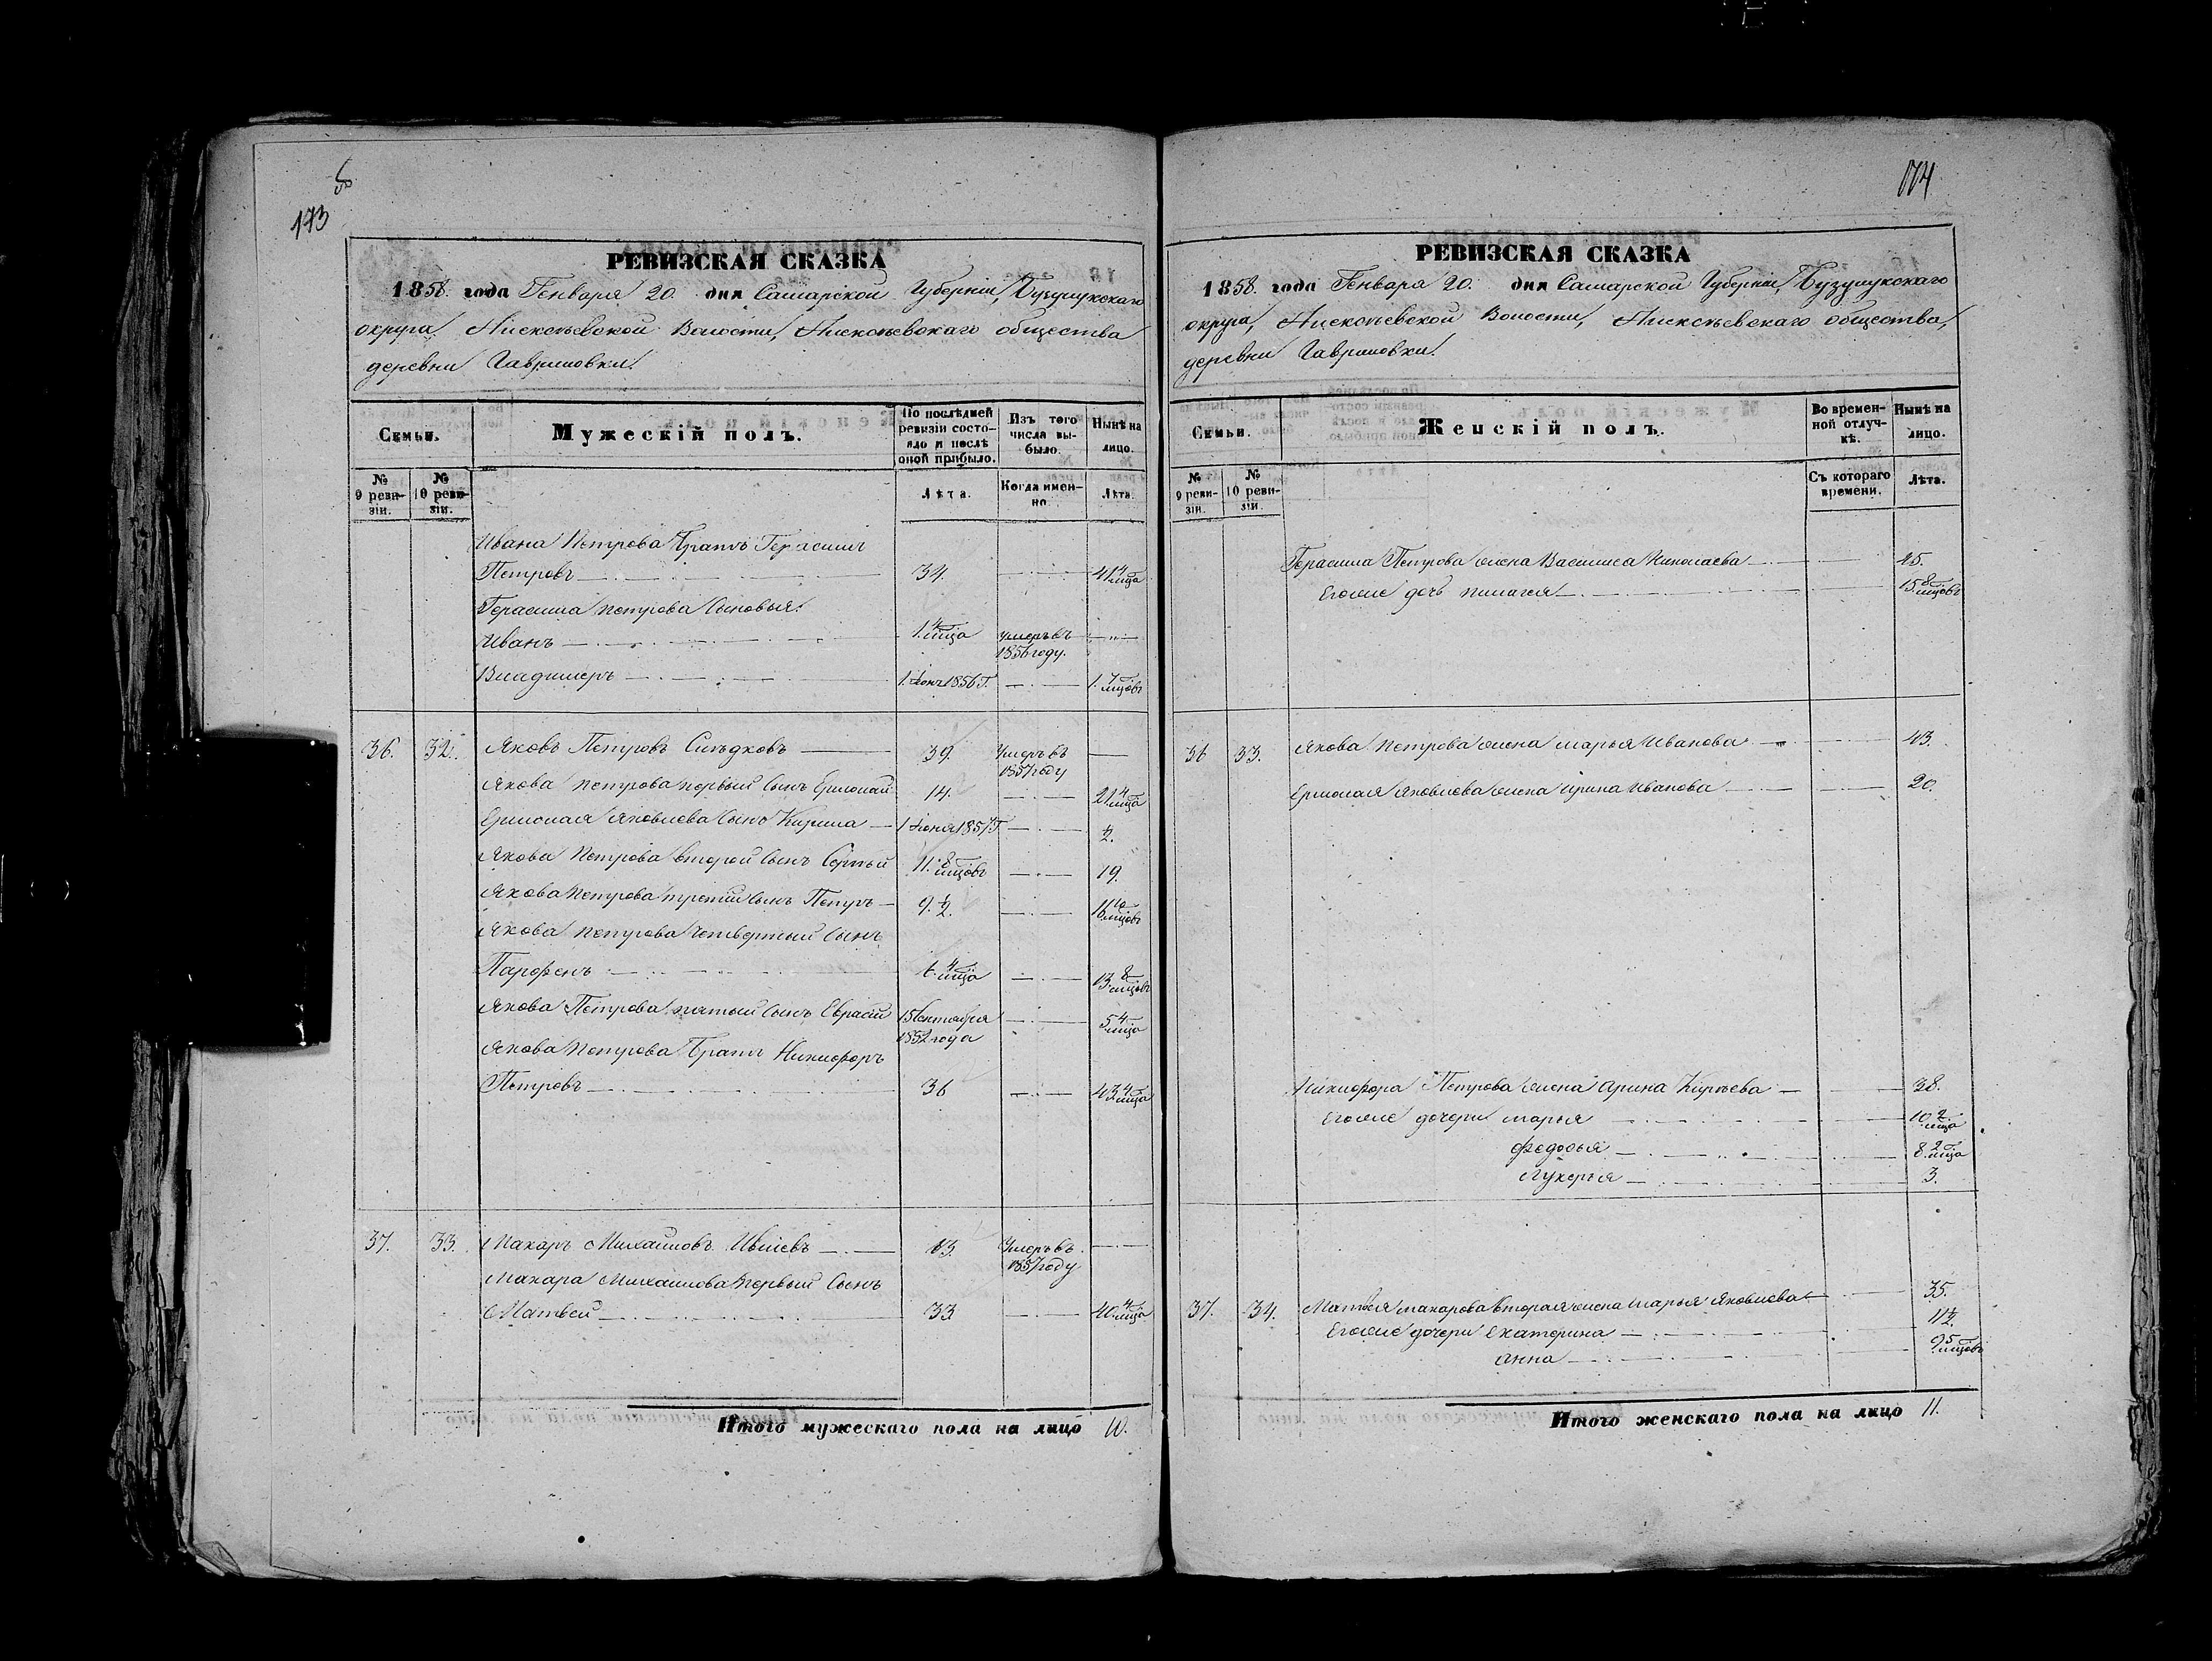 173
РЕВИЗСКАЯ СКАЗКА
1858 года Генваря 20 дня Самарской Губерніи, Бузулукскаго
округа, Алексѣевской Волости, Алексѣевскаго общества
деревни Гавриловки.
Семьи. Мужескій полъ. По послѣдней ревизіи состояло и послѣ оной прибыло. Изъ того числа выбыло. Нынѣ на лицо.
№ 9 ревизіи. № 10 ревизіи. Лѣта. Когда именно. Лѣта.
Ивана Петрова Братъ Герасимъ
Петровъ 34. 41 4/мца
Герасима Петрова Сыновья:
Иванъ 1. 4/мца Умеръ въ 1856 году.
Владимеръ 1. Іюня 1856 Г. 1. 7/мцовъ
36. 32. Яковъ Петровъ Слѣдковъ 39. Умеръ въ 1857 году
Якова Петрова первый Сынъ Ермолай 14. 21. 4/мца
Ермолая Яковлева Сынъ Кирила 1 Іюня 1857 Г. ½.
Якова Петрова второй Сынъ Сергѣй 11. 8/мцовъ 19.
Якова Петрова третій Сынъ Петръ 9. ½. 16 10/мцовъ
Якова Петрова четвертый Сынъ
Парфенъ 6. 4/мца 13. 8/мцовъ
Якова Петрова пятый Сынъ Еврасій 15 Сентября 1852 года 5 4/мца
Якова Петрова Братъ Никифоръ
Петровъ 36 43. 4/мца
37. 33. Макаръ Михайловъ Ивлевъ 63. Умеръ въ 1857 году
Макара Михайлова первый Сынъ
Матвей 33 40. 4/мца
Итого мужескаго пола на лицо 10.
174
РЕВИЗСКАЯ СКАЗКА
1858. года Генваря 20. дня Самарской Губерніи, Бузулукскаго
округа, Алексѣевской Волости, Алексѣевскаго общества,
деревни Гавриловки.
Семьи. Женскій полъ. Во временной отлучкѣ. Нынѣ на лицо.
№ 9 ревизіи. № 10 ревизіи. Съ котораго времени. Лѣта.
Герасима Петрова жена Василиса Николаева 25.
Его же дочь Пилагея 15. 8/мцовъ
36 33. Якова Петрова жена Марья Иванова 43.
Ермолая Яковлева жена Ирина Иванова 20.
Никифора Петрова жена Арина Кирѣева 38.
Его же дочери Марья 10. 2/мца
Федосья 8. 2/мца
Лукерья 3.
37. 34. Матвея Макарова вторая жена Марья Яковлева 35.
Его же дочери Екатерина 11½.
Анна 9 5/мцовъ
Итого женскаго пола на лицо 11.